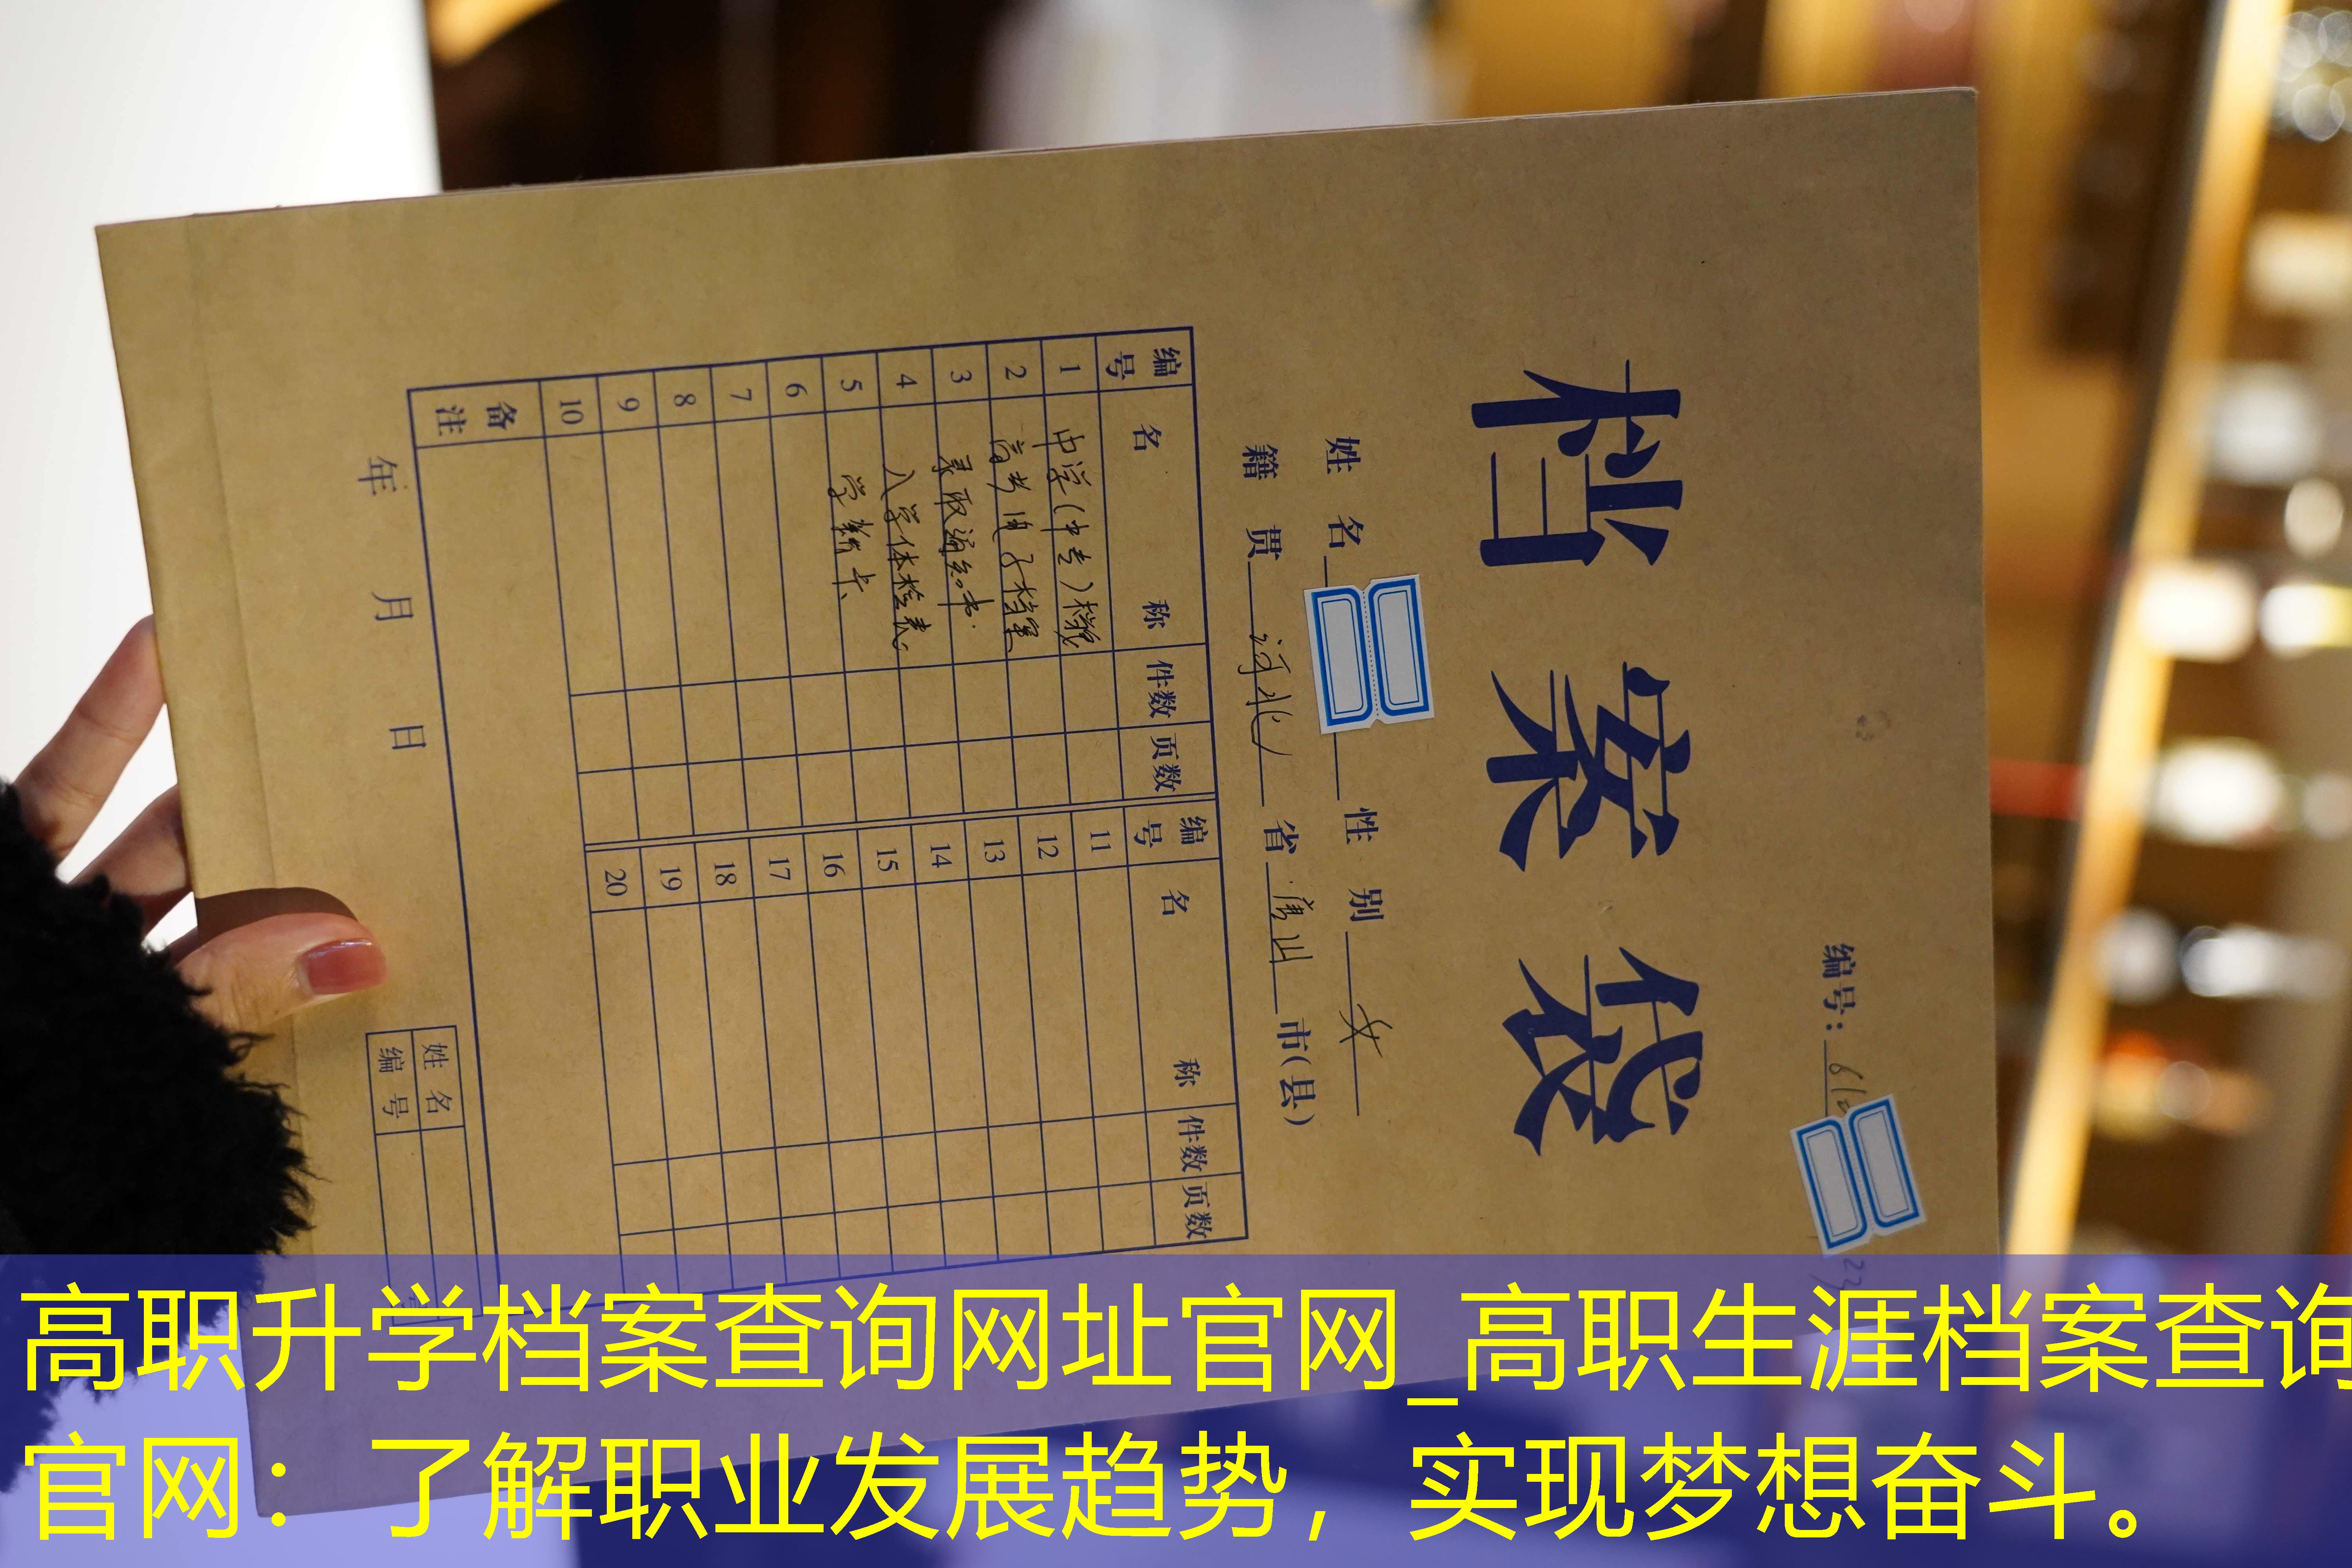 编号：
档案袋
姓名 性别 女
籍贯 河北 省 唐山 市(县)
编号 名称 件数 页数 编号 名称 件数 页数
1 中学(中专)档案 11
2 高考电子档案 12
3 录取通知书. 13
4 入学体检表 14
5 学籍卡 15
6 16
7 17
8 18
9 19
10 20
备注
年 月 日
姓名
编号
高职升学档案查询网址官网_高职生涯档案查询
官网：了解职业发展趋势，实现梦想奋斗。